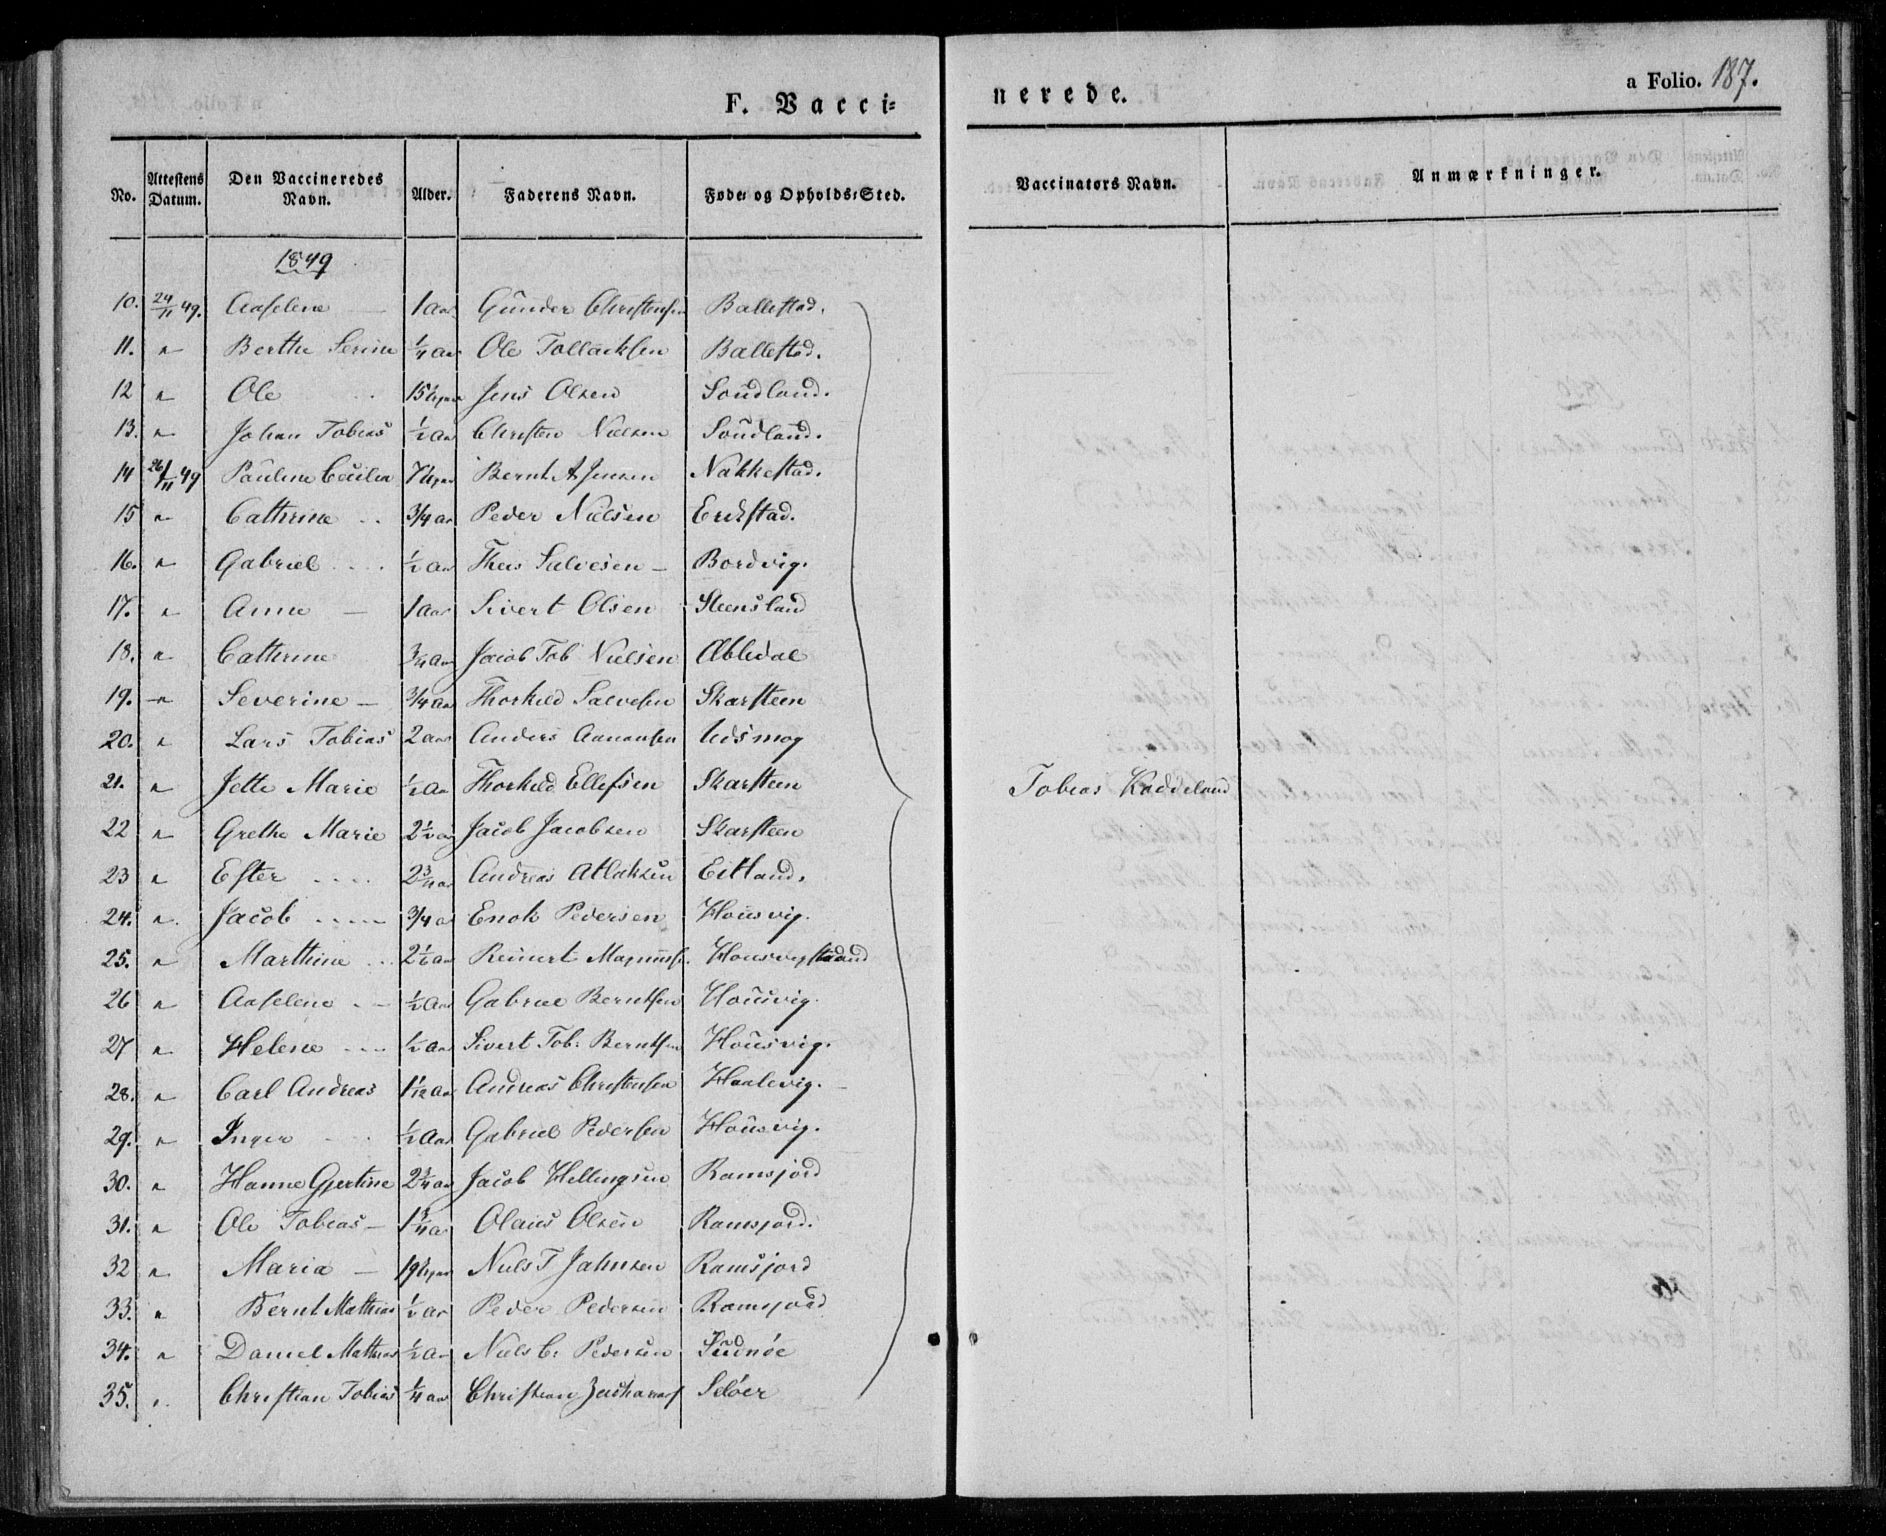 F. Vacci=
nerede.
a Folio. 187.
No. Attestens Datum. Den Vaccineredes Navn. Alder. Faderens Navn. Føde- og Opholds-Sted. Vaccinators Navn. Anmærkninger.
1849
10. 24/11 49. Aaselene — 1 Aar Gunder Christensen Ballestad.
11. " Berthe Serine 1/4 Aar Ole Tollaksen Ballestad.
12 " Ole 15 Uger Jens Olsen Sondland.
13. " Johan Tobias 1/2 Aar Christen Nielsen Soudland.
14 26/11 49 Pauline Cecilia 7 Uger Bernt A Jensen Nakkestad.
15 " Cathrine .. 3/4 Aar Peder Nielsen Erikstad.
16. " Gabriel 1/2 Aar Theis Salvesen — Bordvig.
17. " Anne — 1 Aar Sivert Olsen Steensland
18. " Cathrine 3/4 Aar Jacob Tob Nielsen Æbledal
19. " Severine — 3/4 Aar Thorkild Salvesen Skarsteen
20. " Lars Tobias 2 Aar Anders Aanensen Udsmog
21. " Jette Marie 1/2 Aar Thorkild Ellefsen Skarsteen Tobias Kaddeland
22 " Grethe Marie 2 1/2 Aar Jacob Jacobsen Skarsteen
23 " Ester .... 2 3/4 Aar Andreas Atlaksen Eitland.
24. " Jacob .... 3/4 Aar Enok Pedersen Housvig.
25. " Marthine .. 2 1/2 Aar Reinert Magnuss. Housvigstrand
26 " Aaselene .. 1/2 Aar Gabriel Berntsen Housvig.
27 " Helene ... 1/2 Aar Sivert Tob: Berntsen Housvig.
28. " Carl Andreas 1 1/12 Aar Andreas Christensen Haalevig. —
29. " Inger .. 1/2 Aar Gabriel Pedersen Housvig.
30. " Hanne Gjertine 2 3/4 Aar Jacob Hellingsen Ramsjord
31. " Ole Tobias — 1 3/4 Aar Olaus Olsen Ramsjord.
32 " Maria — 19 Uger Niels T Jahnsen Ramsjord
33. " Bernt Mathias 1/2 Aar Peder Pedersen Ramsjord
34. " Daniel Mathias 1/2 Aar Niels C. Pedersen
35. " Christian Tobias 1/4 Aar Christian Zachariass Seløer